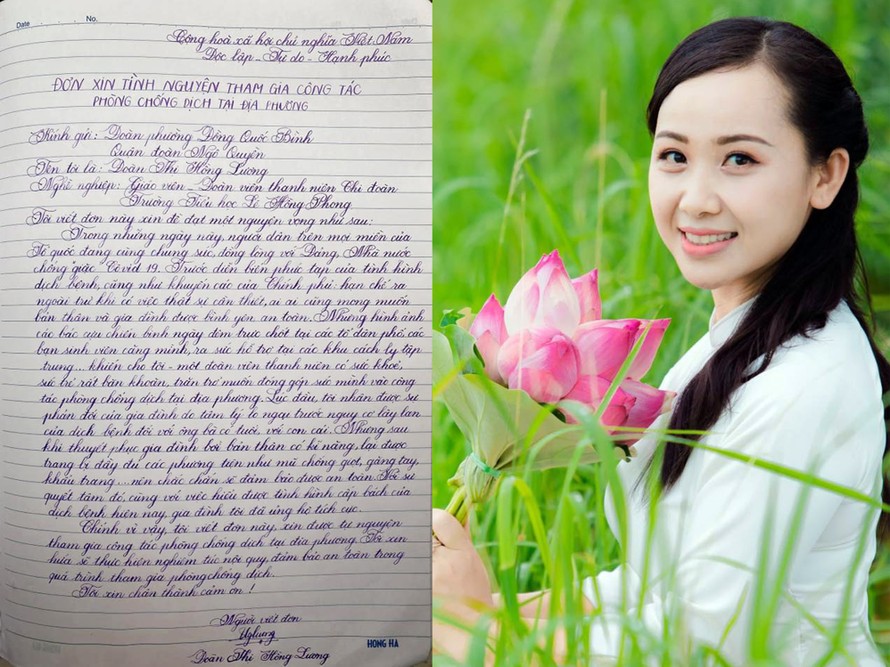 Date No.
Cộng hoà xã hội chủ nghĩa Việt Nam
Độc lập - Tự do - Hạnh phúc
ĐƠN XIN TÌNH NGUYỆN THAM GIA CÔNG TÁC
PHÒNG CHỐNG DỊCH TẠI ĐỊA PHƯƠNG
Kính gửi: Đoàn phường Đổng Quốc Bình
Quận đoàn Ngô Quyền
Tên tôi là: Doãn Thị Hồng Lương
Nghề nghiệp: Giáo viên - Đoàn viên thanh niên Chi đoàn
Trường Tiểu học Lê Hồng Phong
Tôi viết đơn này xin đề đạt một nguyện vọng như sau:
Trong những ngày này, người dân trên mọi miền của
Tổ quốc đang cùng chung sức, đồng lòng với Đảng, Nhà nước
chống "giặc" Covid 19. Trước diễn biến phức tạp của tình hình
dịch bệnh, cũng như khuyến cáo của Chính phủ: hạn chế ra
ngoài trừ khi có việc thật sự cần thiết, ai ai cũng mong muốn
bản thân và gia đình được bình yên, an toàn. Những hình ảnh
các bác cựu chiến binh ngày đêm trực chốt tại các tổ dân phố, các
bạn sinh viên căng mình, ra sức hỗ trợ tại các khu cách ly tập
trung... khiến cho tôi - một đoàn viên thanh niên có sức khoẻ,
sức trẻ rất băn khoăn, trăn trở muốn đóng góp sức mình vào công
tác phòng chống dịch tại địa phương. Lúc đầu, tôi nhận được sự
phản đối của gia đình do tâm lý lo ngại trước nguy cơ lây lan
của dịch bệnh đối với ông bà có tuổi, với con cái. Nhưng sau
khi thuyết phục gia đình bởi bản thân có kĩ năng, lại được
trang bị đầy đủ các phương tiện như mũ chống giọt, găng tay,
khẩu trang... nên chắc chắn sẽ đảm bảo được an toàn. Với sự
quyết tâm đó, cùng với việc hiểu được tình hình cấp bách của
dịch bệnh hiện nay, gia đình tôi đã ủng hộ tích cực.
Chính vì vậy, tôi viết đơn này, xin được tự nguyện
tham gia công tác phòng chống dịch tại địa phương. Tôi xin
hứa sẽ thực hiện nghiêm túc nội quy, đảm bảo an toàn trong
quá trình tham gia phòng chống dịch.
Tôi xin chân thành cảm ơn!
Người viết đơn
Doãn Thị Hồng Lương
HONG HA